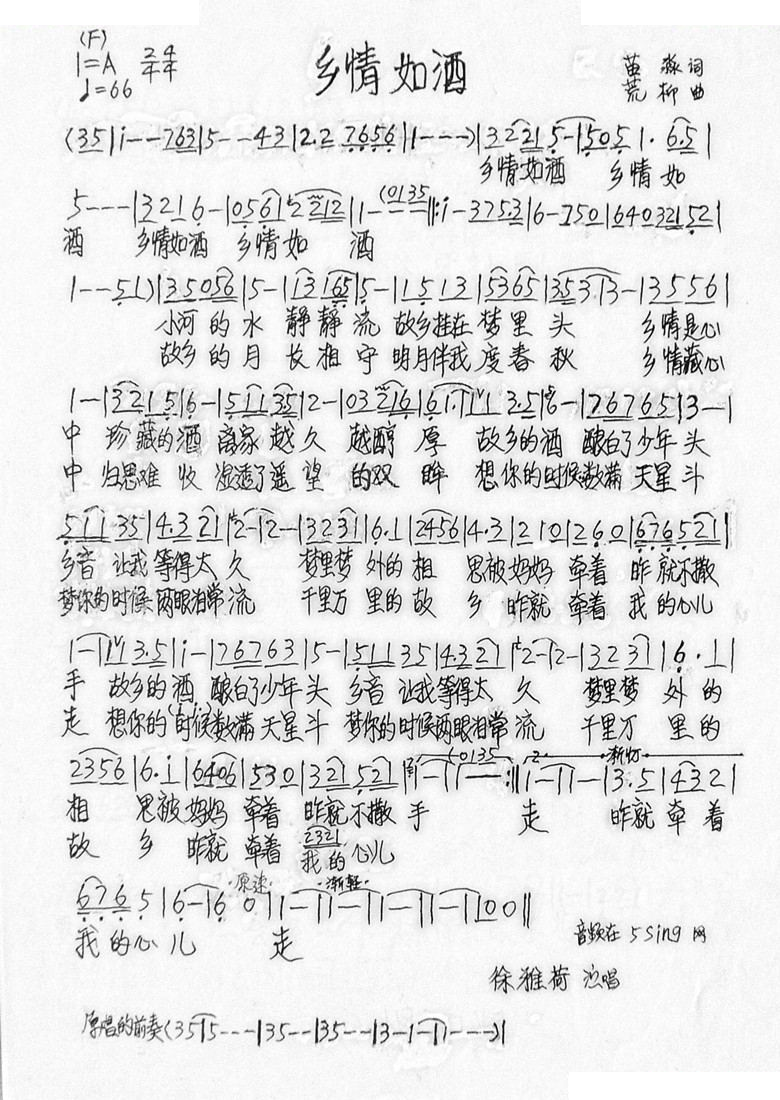 (F)
1=A 2/4 4/4
♩=66
乡情如酒
苗 淼 词
荒 柳 曲
(35|i--763|5--43|2.27656|1---)|32215-|15051.6.5|
乡情如酒 乡情如
5---|32216-|0561222 12|1-(0135‖:i-375.3|6-750|6403215.2|
酒 乡情如酒 乡情如 酒
1--51)|35056|5-|13165|5-|1513|5365|353.13-|3556|
小河的水 静静流 故乡挂在梦里头 乡情是心
故乡的月 长相守 明月伴我度春秋 乡情藏心
1-|32215|6-|51135|2-|03216|61.1|1 3.5|6-|76765|3-|
中 珍藏的酒 离家越久 越醇厚 故乡的酒 酿白了少年头
中 归思难收 湿透了遥望 的双眸 想你的时候数满天星斗
51135|4.321|2-2-|3231|6.1|2456|4.3|210|260|676521|
乡音让我等得太久 梦里梦外的相 思被妈妈牵着 昨就不撒
梦你的时候两眼泪常流 千里万里的故乡 昨就牵着我的心儿
1-|1 3.5|i-|76763|5-|51135|4.321|2-2-|3231|6.1|
手 故乡的酒 酿白了少年头 乡音让我等得太久 梦里梦外的
走 想你的时候数满天星斗 梦你的时候两眼泪常流 千里万里的
2356|6.i|6406|530|321521|1-1-(0135:‖1-1-|3.5|4321|
渐慢
相 思被妈妈牵着 昨就不撒手 走 昨就牵着
2321
故乡 昨就牵着 我的心儿
原速 渐轻
6765|6-6 0|1-1-1-1-1-|00‖
我的心儿 走
音频在5sing网
徐雅荷 演唱
原唱的前奏(35|5---|35--|35--|3-1-|1---)|